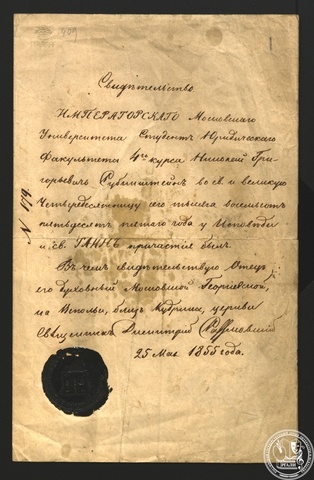 409
1
Свидѣтельство
ИМПЕРАТОРСКАГО Московскаго
Университета Студентъ Юридическаго
Факультета 4го курса Николай Гри-
горьевичъ Рубинштейнъ во св. и великую
Четыредесятницу сего тысяча восемьсотъ
пятьдесятъ пятаго года у Исповѣди
и св. ТАИНЪ причастія былъ.
Въ чемъ свидѣтельствую Отецъ
его Духовный Московской Георгіевской,
на Всполье, близъ Кудрина, церкви
Священникъ Димитрій
25 Мая 1855 года.
N 179.
РГАЛИ